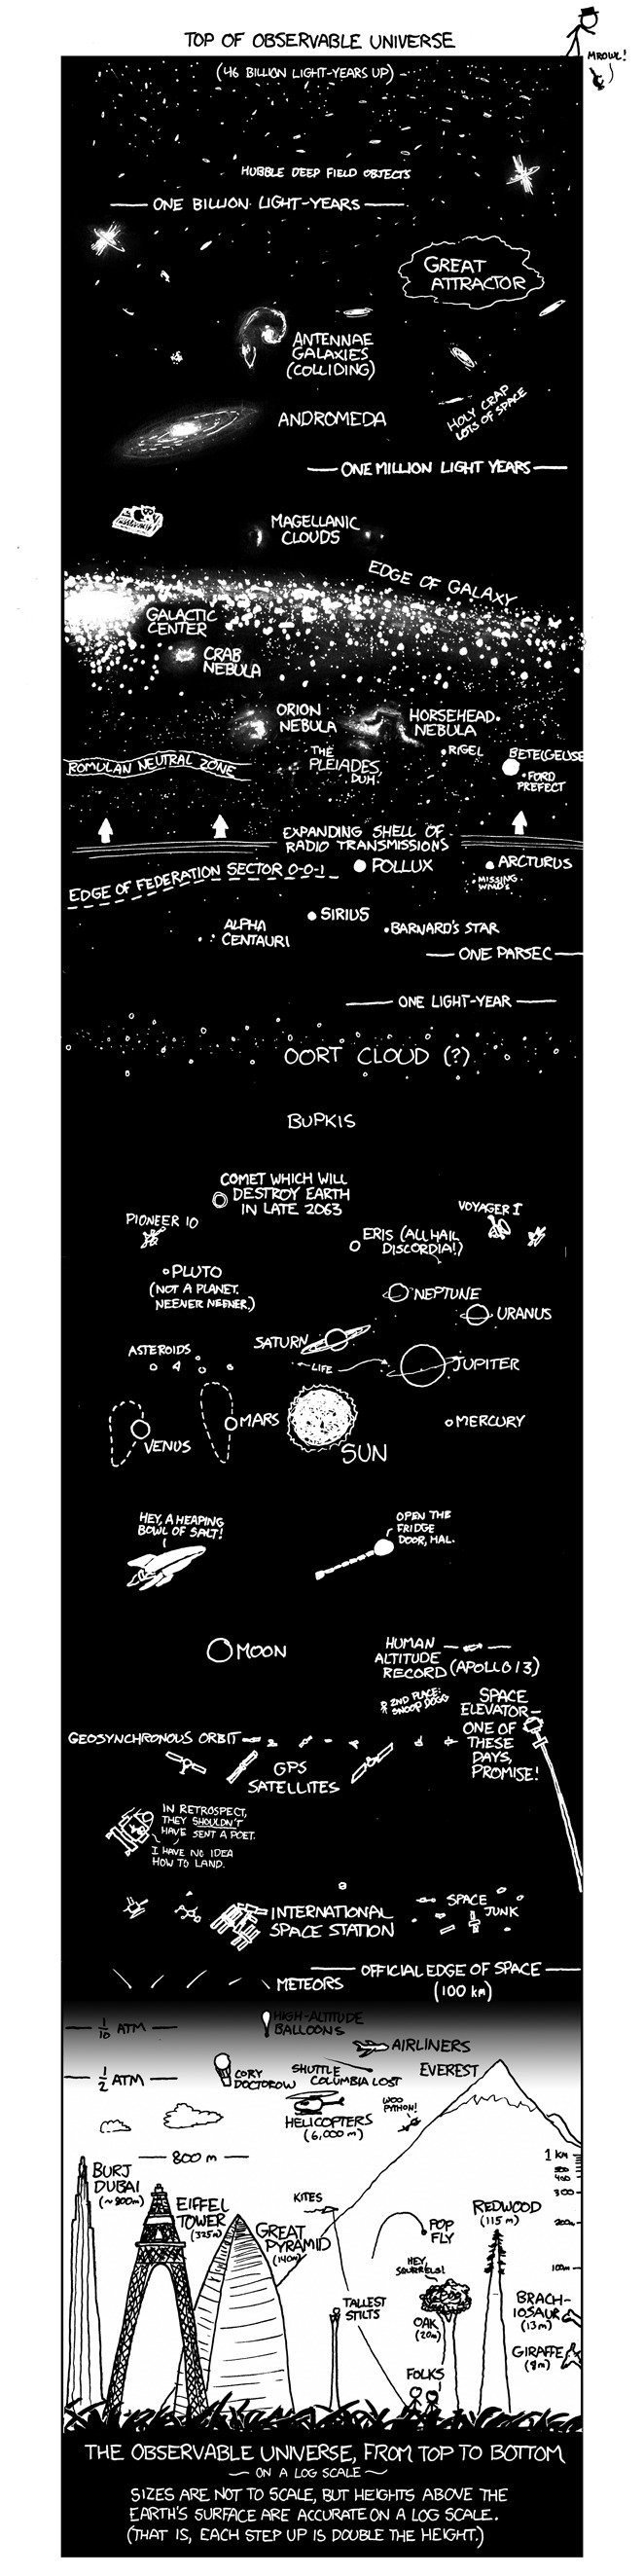 TOP OF OBSERVABLE UNIVERSE
MROWL!
(46 BILLION LIGHT-YEARS UP)
HUBBLE DEEP FIELD OBJECTS
ONE BILLION LIGHT-YEARS
GREAT
ATTRACTOR
ANTENNAE
GALAXIES
(COLLIDING)
HOLY CRAP
LOTS OF SPACE
ANDROMEDA
ONE MILLION LIGHT YEARS
MAGELLANIC
CLOUDS
EDGE OF GALAXY
GALACTIC
CENTER
CRAB
NEBULA
ORION
NEBULA
HORSEHEAD
NEBULA
ROMULAN NEUTRAL ZONE
THE
PLEIADES
DUH.
RIGEL
BETELGEUSE
FORD
PREFECT
EXPANDING SHELL OF
RADIO TRANSMISSIONS
EDGE OF FEDERATION SECTOR 0-0-1
POLLUX
ARCTURUS
MISSING
WMD'S
SIRIUS
ALPHA
CENTAURI
BARNARD'S STAR
ONE PARSEC
ONE LIGHT-YEAR
OORT CLOUD (?)
BUPKIS
COMET WHICH WILL
DESTROY EARTH
IN LATE 2063
PIONEER 10
VOYAGER I
ERIS (ALL HAIL
DISCORDIA!)
PLUTO
(NOT A PLANET.
NEENER NEENER.)
NEPTUNE
URANUS
SATURN
ASTEROIDS
LIFE
JUPITER
VENUS
MARS
SUN
MERCURY
HEY, A HEAPING
BOWL OF SALT!
OPEN THE
FRIDGE
DOOR, HAL.
MOON
HUMAN
ALTITUDE
RECORD (APOLLO 13)
2ND PLACE:
SNOOP DOGG
SPACE
ELEVATOR—
ONE OF
THESE
DAYS,
PROMISE!
GEOSYNCHRONOUS ORBIT
GPS
SATELLITES
IN RETROSPECT,
THEY SHOULDN'T
HAVE SENT A POET.
I HAVE NO IDEA
HOW TO LAND.
INTERNATIONAL
SPACE STATION
SPACE
JUNK
OFFICIAL EDGE OF SPACE
(100 km)
METEORS
1/10 ATM
HIGH-ALTITUDE
BALLOONS
AIRLINERS
1/2 ATM
CORY
DOCTOROW
SHUTTLE
COLUMBIA LOST
EVEREST
HELICOPTERS
(6,000 m)
WOO
PYTHON!
800 m
1 KM
500
400
300
200m
100m
BURJ
DUBAI
(~800m)
EIFFEL
TOWER
(325m)
GREAT
PYRAMID
(140m)
KITES
POP
FLY
REDWOOD
(115 m)
HEY,
SQUIRRELS!
TALLEST
STILTS
OAK
(20m)
BRACH-
IOSAUR
(13m)
GIRAFFE
(8m)
FOLKS
THE OBSERVABLE UNIVERSE, FROM TOP TO BOTTOM
~ ON A LOG SCALE ~
SIZES ARE NOT TO SCALE, BUT HEIGHTS ABOVE THE
EARTH'S SURFACE ARE ACCURATE ON A LOG SCALE.
(THAT IS, EACH STEP UP IS DOUBLE THE HEIGHT.)